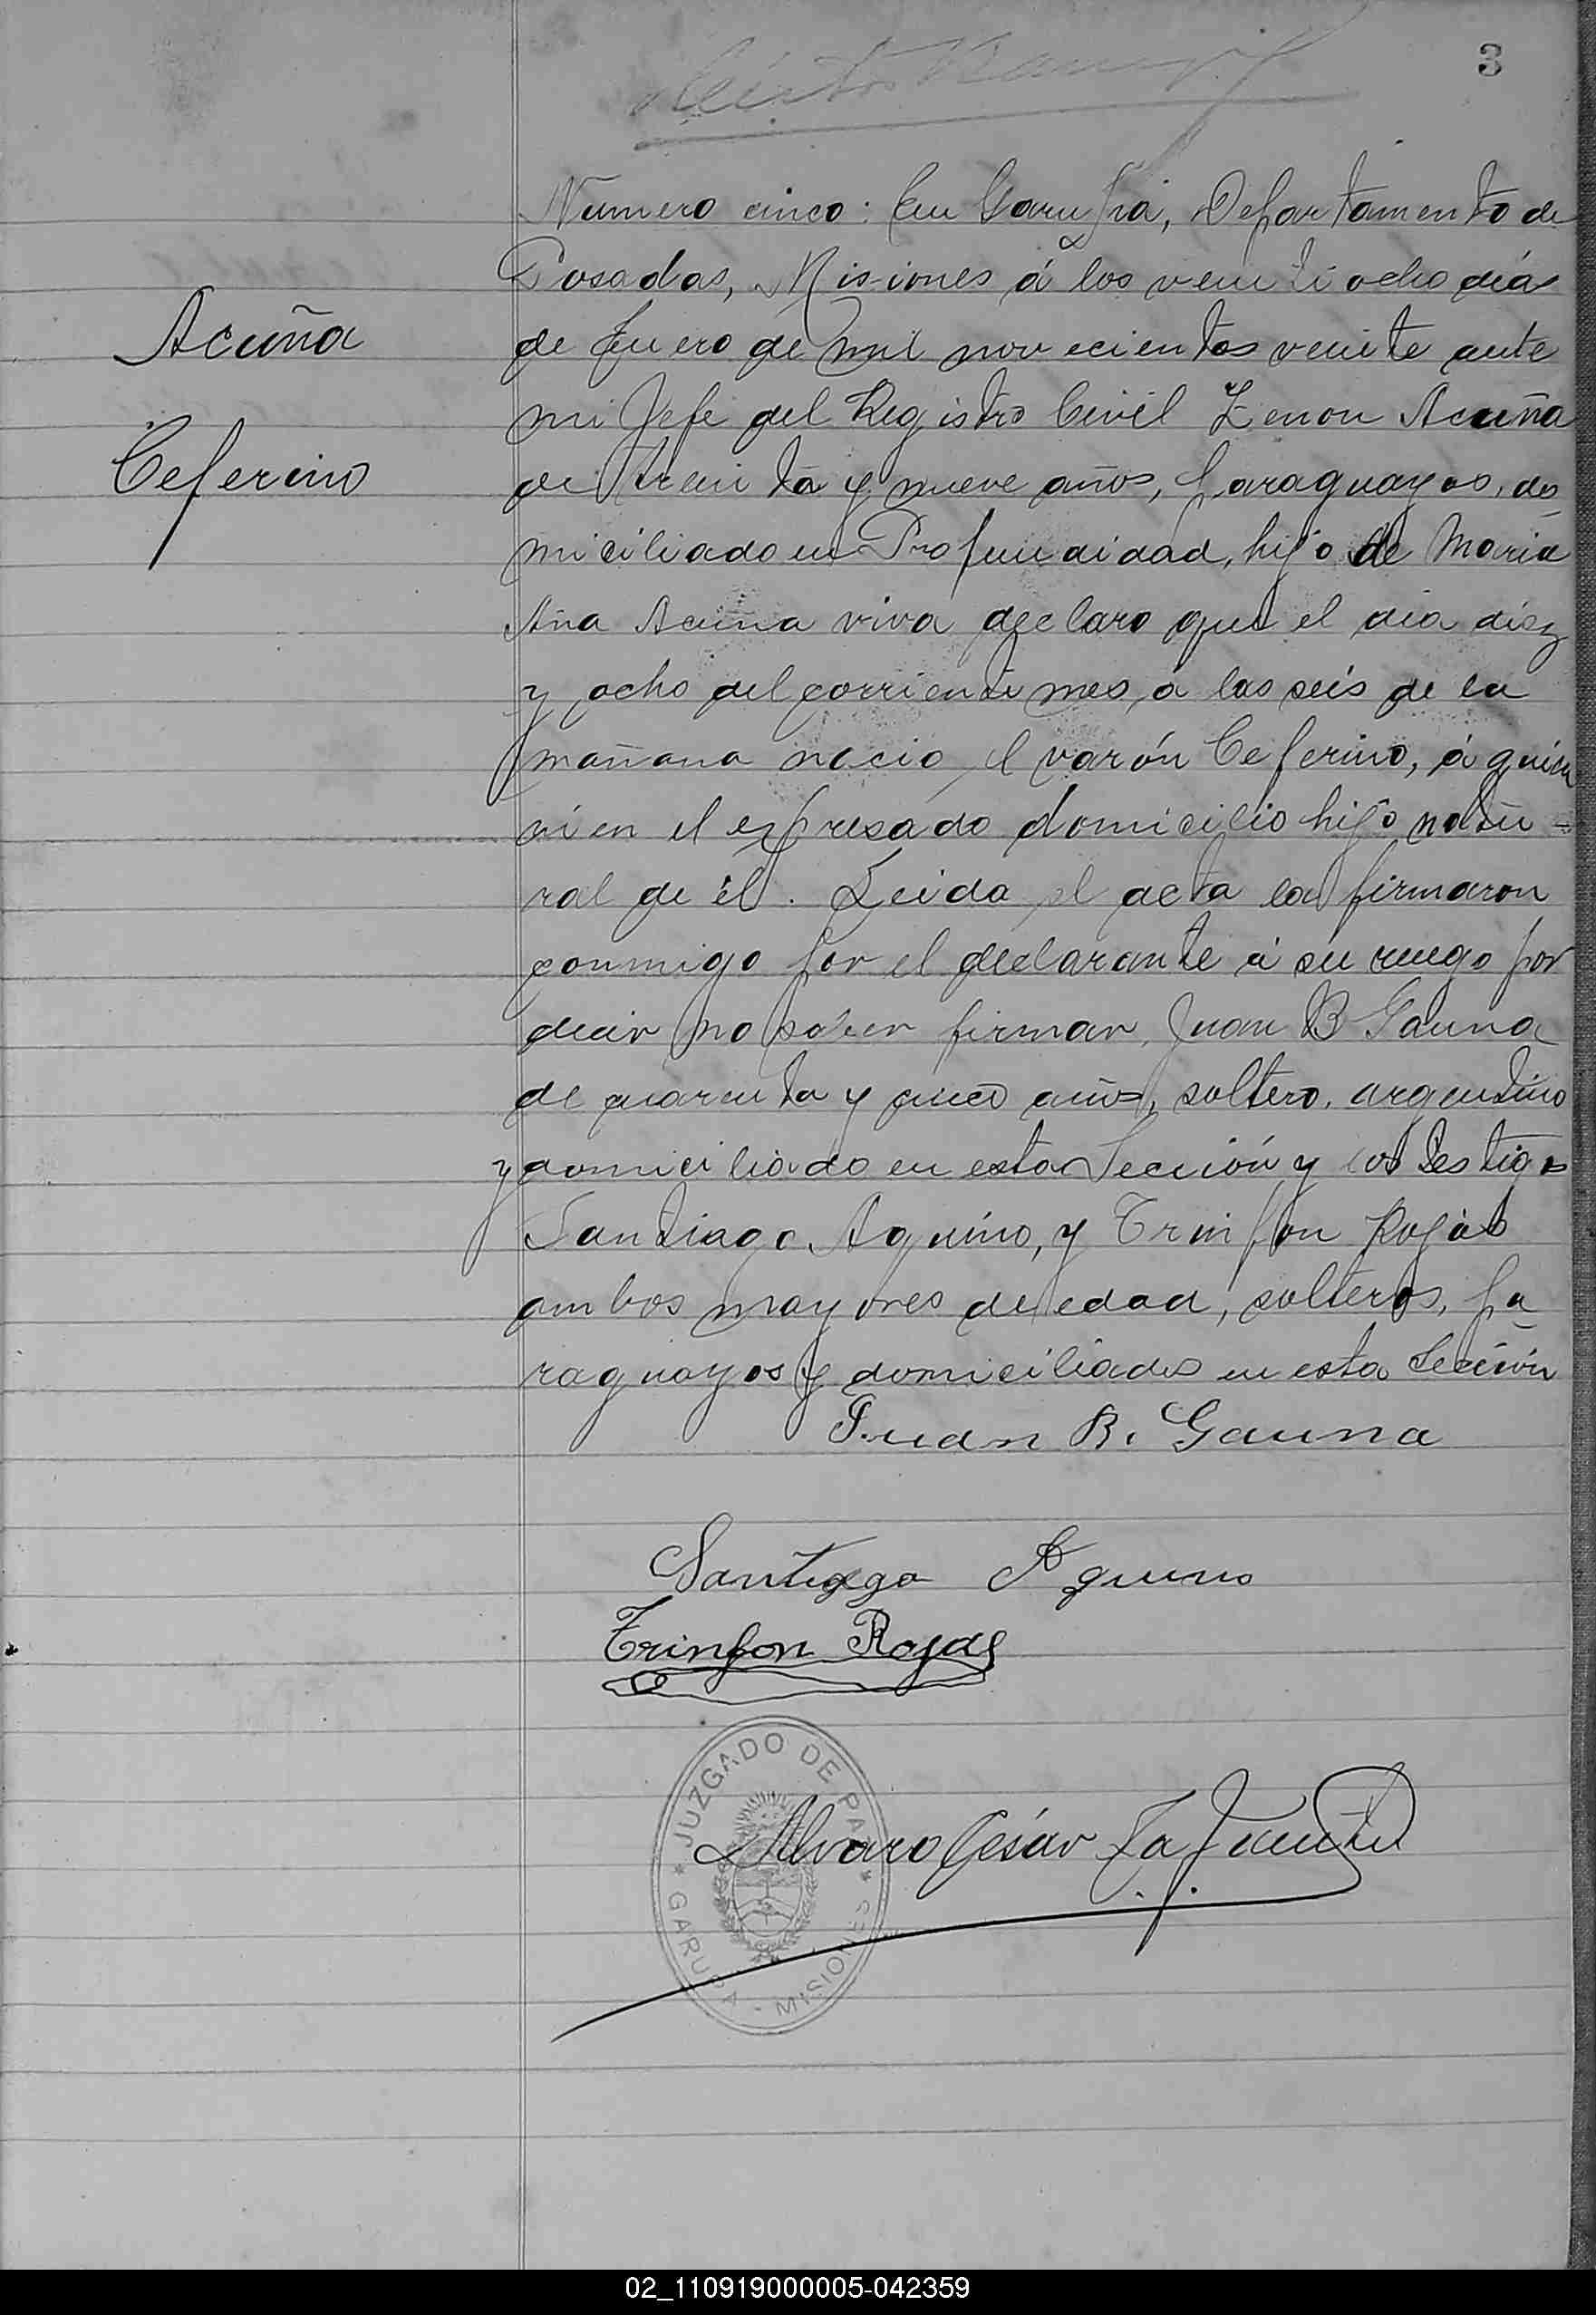 3
Acuña
Ceferino
Número cinco: En Garupá, Departamento de
Posadas, Misiones á los veinti ocho días
de Enero de mil novecientos veinte ante
mi Jefe del Registro Civil Zenon Acuña
de treinta y nueve años, paraguayos, do
miciliado en Profundidad, hijo de Maria
Ana Acuña viva declaro que el dia diez
y ocho del corriente mes, á las seis de la
mañana nació el varón Ceferino, á quien
ví en el expresado domicilio hijo natu-
ral de él. Leida el acta la firmaron
conmigo por el declarante á su ruego por
decir no saber firmar, Juan B Gauna
de cuarenta y cinco años, soltero, argentino
y domiciliado en esta Sección y los testigos
Santiago Aquino, y Trinfon Rojas
ambos mayores de edad, solteros, pa
raguayos y domiciliados en esta Sección
Juan B. Gauna
Santiago Aquino
Trinfon Rojas
JUZGADO DE PAZ
Alvaro César
GARUPA - MISIONES
02_110919000005-042359